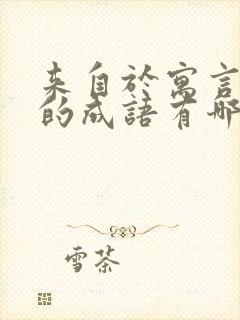 来自於寓言
的成語有哪
雪茶